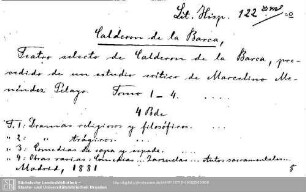 Lit. Hisp. 122
Calderon de la Barca,
Teatro selecto de Calderon de la Barca, pre-
cedido de un estudio critico de Marcelino Me-
néndez Pelayo. Tomo 1-4. ....
4 Bde
T. 1: Dramas religiosos y filosóficos. ...
" 2: " trágicos. ...
" 3: Comedias de capa y espada. ....
" 4: Obras varias: Comedias... Zarzuelas... Autos sacramentales.
Madrid, 1881